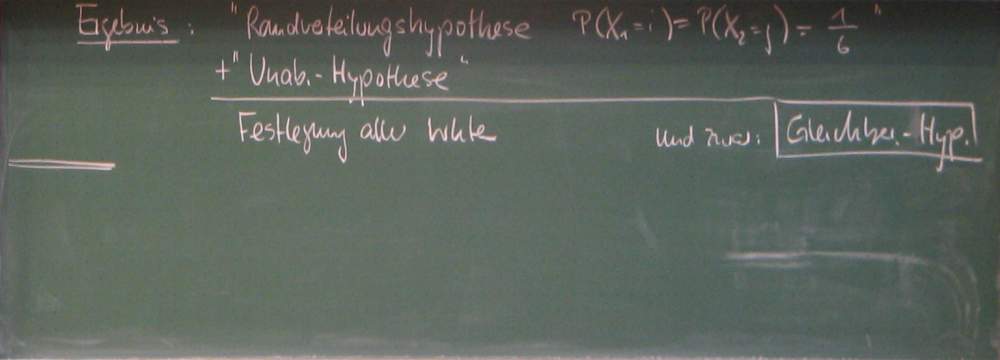 Ergebnis: "Randverteilungshypothese P(X₁=i)=P(X₂=j)=1/6"
+ "Unab.-Hypothese"
Festlegung aller Werte und zwar: Gleichver.-Hyp.